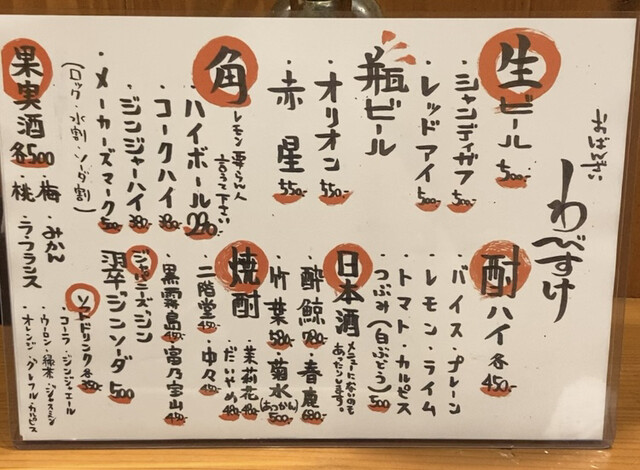 おばんざい
わべすけ
生ビール 500-
シャンディガフ 500-
レッドアイ 500-
瓶ビール
・オリオン 550-
・赤星 550-
角
レモン要らん人
言うて下さい
・ハイボール 290-
・コークハイ 380-
・ジンジャーハイ 380-
・メーカーズマーク 500-
(ロック・水割・ソダ割)
果実酒 各500
・梅・みかん
・桃・ラ・フランス
酎ハイ 各450-
・バイス・プレーン
・レモン・ライム
・トマト・カルピス
・つぶみ(白ぶどう) 500
日本酒
メニューにないのも
あったりします。
・酔鯨 780-・春鹿 680-
・竹葉 580-・菊水(あつかん) 500-
焼酎
・茉莉花 480-
・だいやめ 480-
・二階堂 450-・中々 450-
・黒霧島 450-・富乃宝山 450-
ジャパニーズジン
翠ジンソーダ 500
ソフトドリンク各250-
・コーラ・ジンジャエール
・ウーロン・緑茶・ジャスミン
・オレンジ・グレフル・カルピス